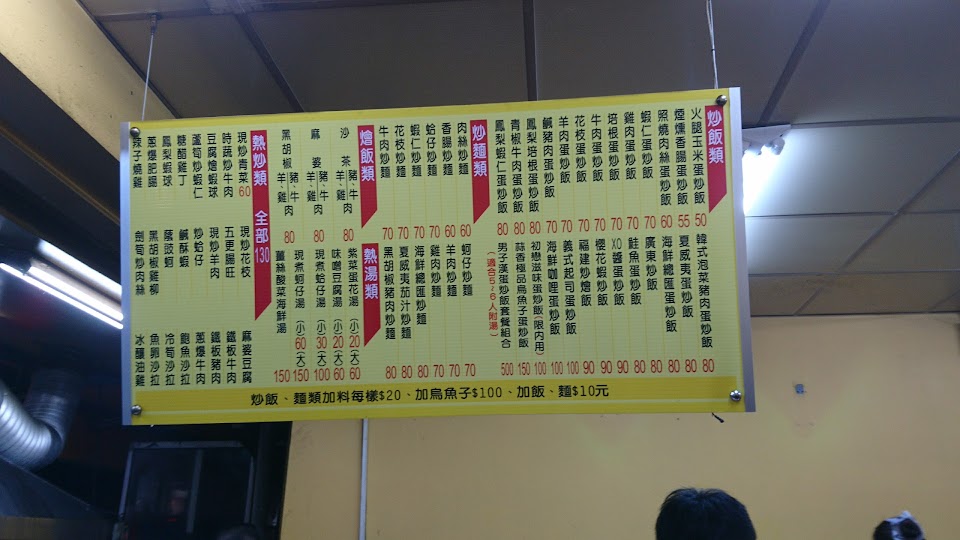 炒飯類
火腿玉米蛋炒飯 50
煙燻香腸蛋炒飯 55
照燒肉絲蛋炒飯 60
蝦仁蛋炒飯 70
雞肉蛋炒飯 70
培根蛋炒飯 70
牛肉蛋炒飯 70
花枝蛋炒飯 70
羊肉蛋炒飯 70
鹹豬肉蛋炒飯 70
鳳梨培根蛋炒飯 80
青椒牛肉蛋炒飯 80
鳳梨蝦仁蛋炒飯 80
韓式泡菜豬肉蛋炒飯 80
夏威夷蛋炒飯 80
海鮮總匯蛋炒飯 80
廣東炒飯 80
鮭魚蛋炒飯 80
XO醬蛋炒飯 90
櫻花蝦蛋炒飯 90
福建炒燴飯 90
義式起司蛋炒飯 100
海鮮咖哩蛋炒飯 100
初戀滋味蛋炒飯(限內用) 100
蒜香極品烏魚子蛋炒飯 150
男子漢蛋炒飯套餐組合 500
(適合5~6人附湯)
炒麵類
肉絲炒麵 60
香腸炒麵 60
蛤仔炒麵 70
蝦仁炒麵 70
花枝炒麵 70
牛肉炒麵 70
蚵仔炒麵 70
羊肉炒麵 70
雞肉炒麵 70
海鮮總匯炒麵 80
夏威夷茄汁炒麵 80
黑胡椒豬肉炒麵 80
燴飯類
沙茶 豬、牛 羊、雞 肉 80
麻婆 豬、牛 羊、雞 肉 80
黑胡椒 豬、牛 羊、雞 肉 80
熱湯類
紫菜蛋花湯 (小)20(大)60
味噌豆腐湯 (小)20(大)60
現煮蛤仔湯 (小)30(大)100
現煮蚵仔湯 (小)60(大)150
薑絲酸菜海鮮湯 150
熱炒類 全部130
現炒青菜 60
時蔬炒牛肉
豆腐燴蝦球
蘆筍炒蝦仁
糖醋雞丁
鳳梨蝦球
蔥爆肥腸
辣子燒雞
現炒花枝
五更腸旺
現炒羊肉
炒蛤仔
鹹酥蝦
蔭豉蚵
黑胡椒雞柳
劍筍炒肉絲
麻婆豆腐
鐵板牛肉
鐵板豬肉
蔥爆牛肉
鮑魚沙拉
冷筍沙拉
魚卵沙拉
冰釀油雞
炒飯、麵類加料每樣$20、加烏魚子$100、加飯、麵$10元